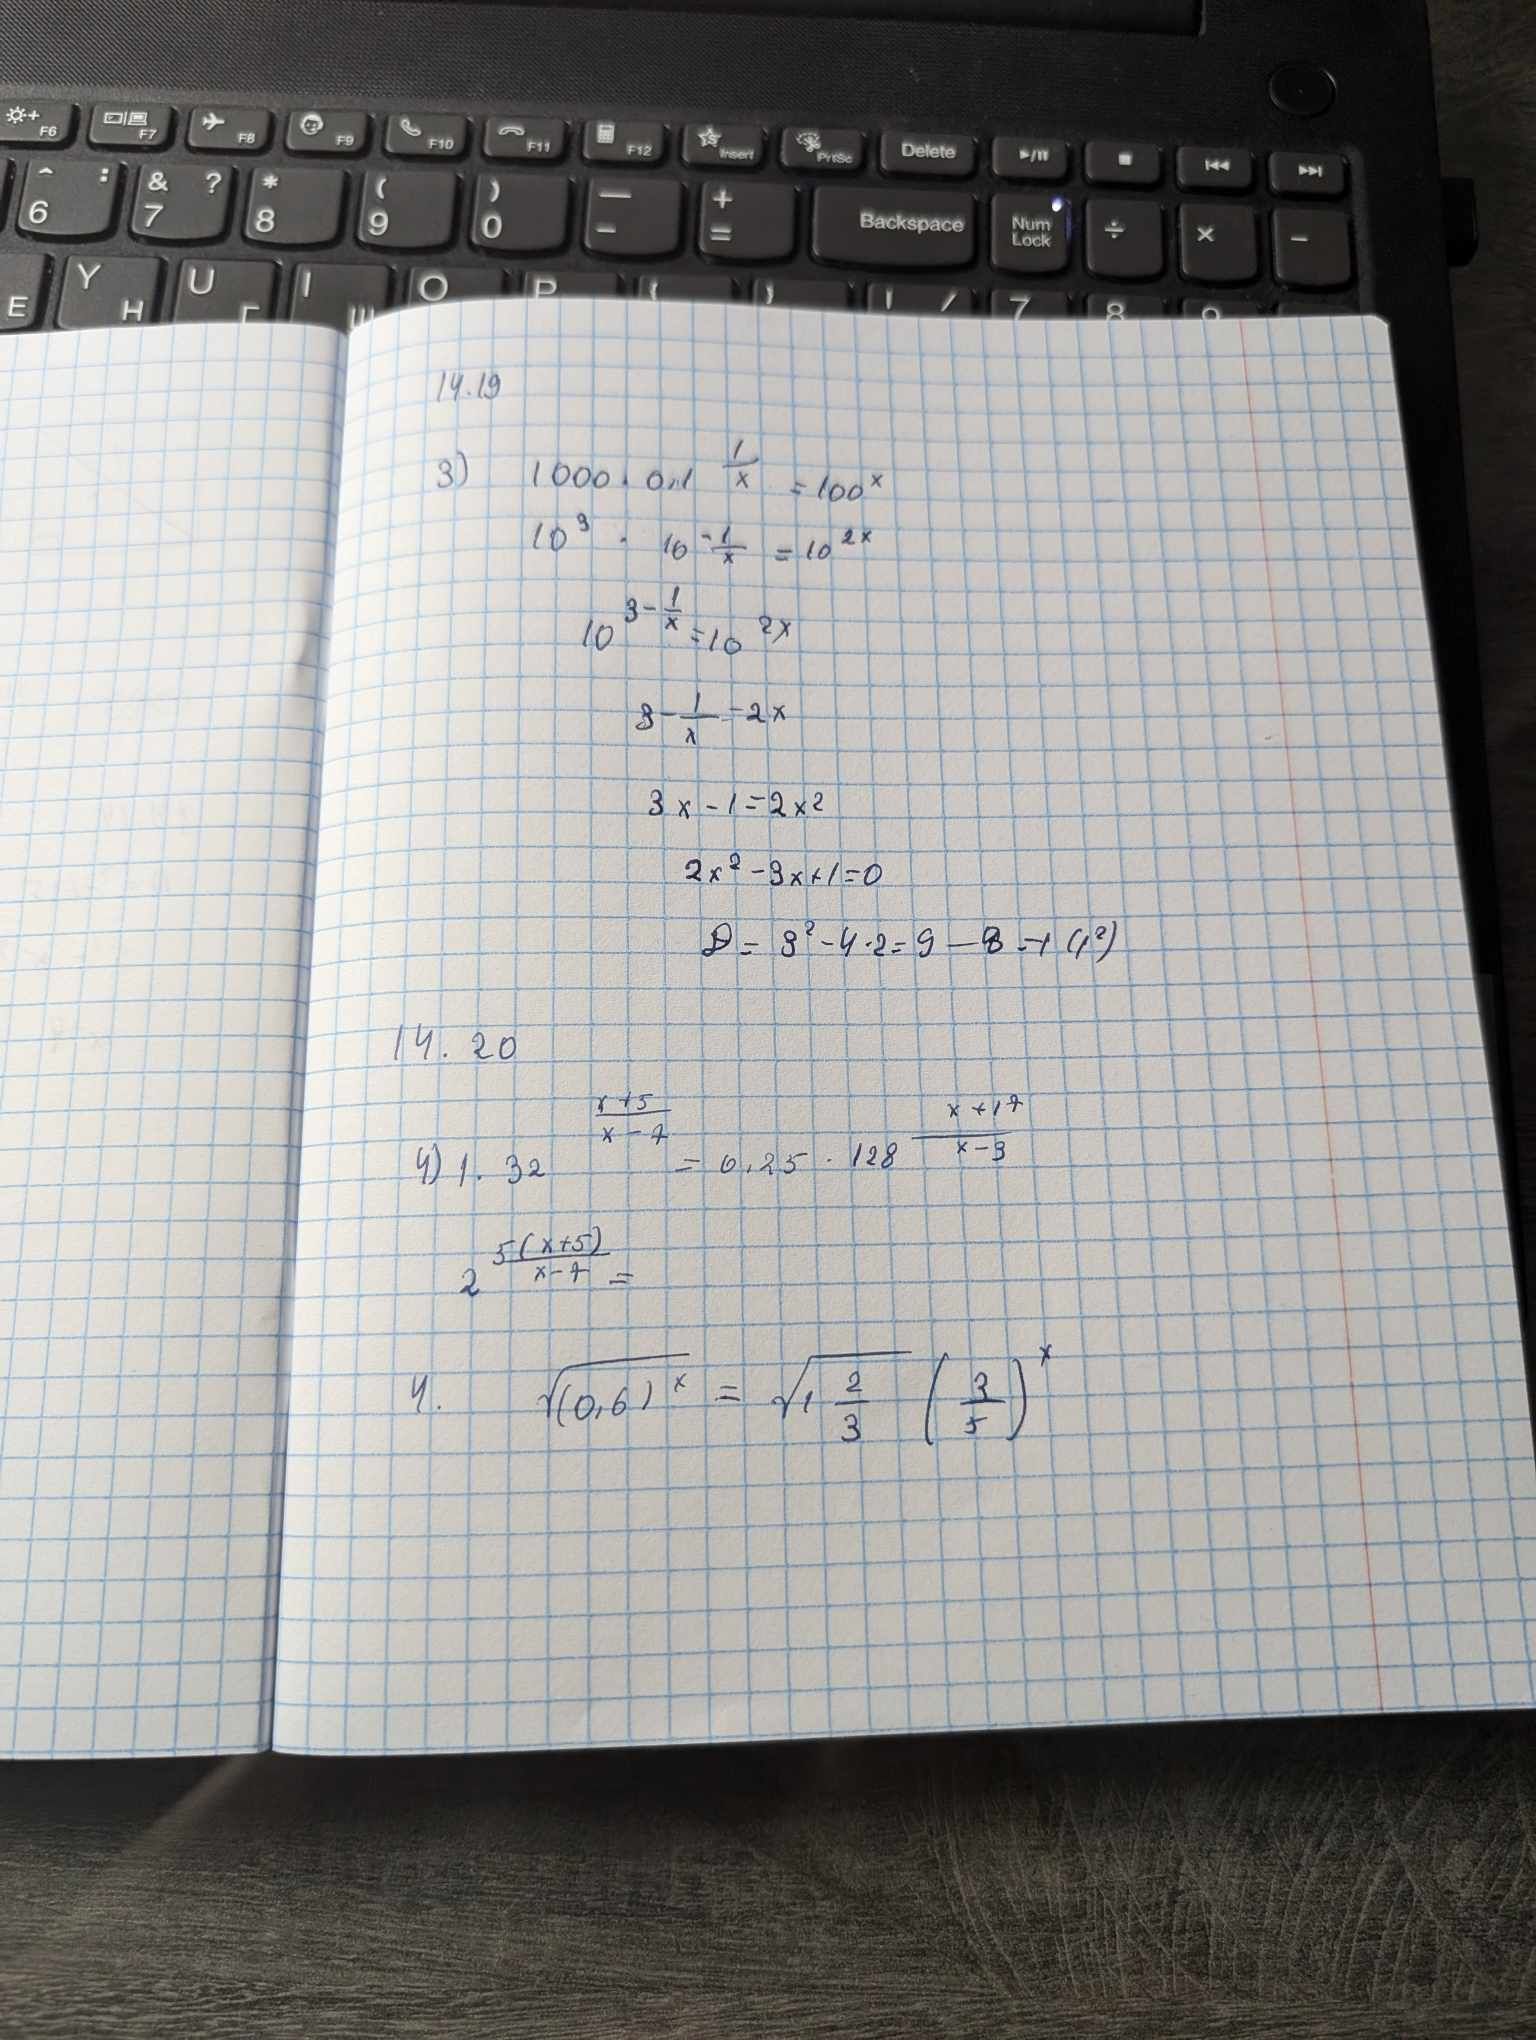 F6 F7 F8 F9 F10 F11 F12 Insert PrtSc Delete
^ : 6 & ? 7 * 8 ( 9 ) 0 — - + = Backspace Num Lock ÷ × −
E Y Н U Г I Ш O P 7 8 9
14.19
3) 1000 · 0,1^(1/x) = 100^x
10^3 · 10^(-1/x) = 10^(2x)
10^(3-1/x) = 10^(2x)
3 - 1/x = 2x
3x - 1 = 2x²
2x² - 3x + 1 = 0
D = 3² - 4·2 = 9 - 8 = 1 (1²)
14.20
4) 1. 32^((x+5)/(x-7)) = 0,25 · 128^((x+17)/(x-3))
2^(5(x+5)/(x-7)) =
4. √(0,6)^x = √(1 2/3) (3/5)^x